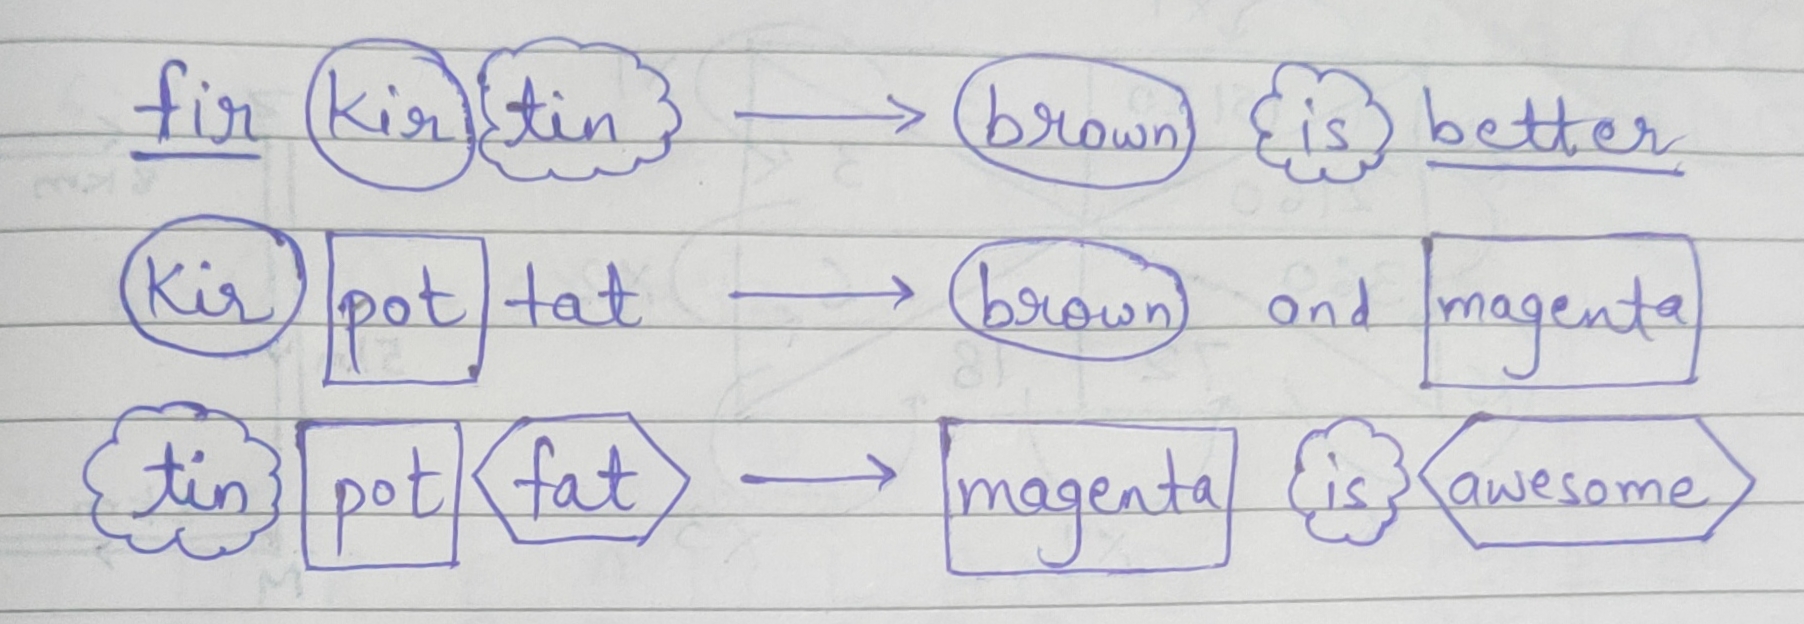 fir kir tin → brown is better
kir pot tat → brown and magenta
tin pot fat → magenta is awesome